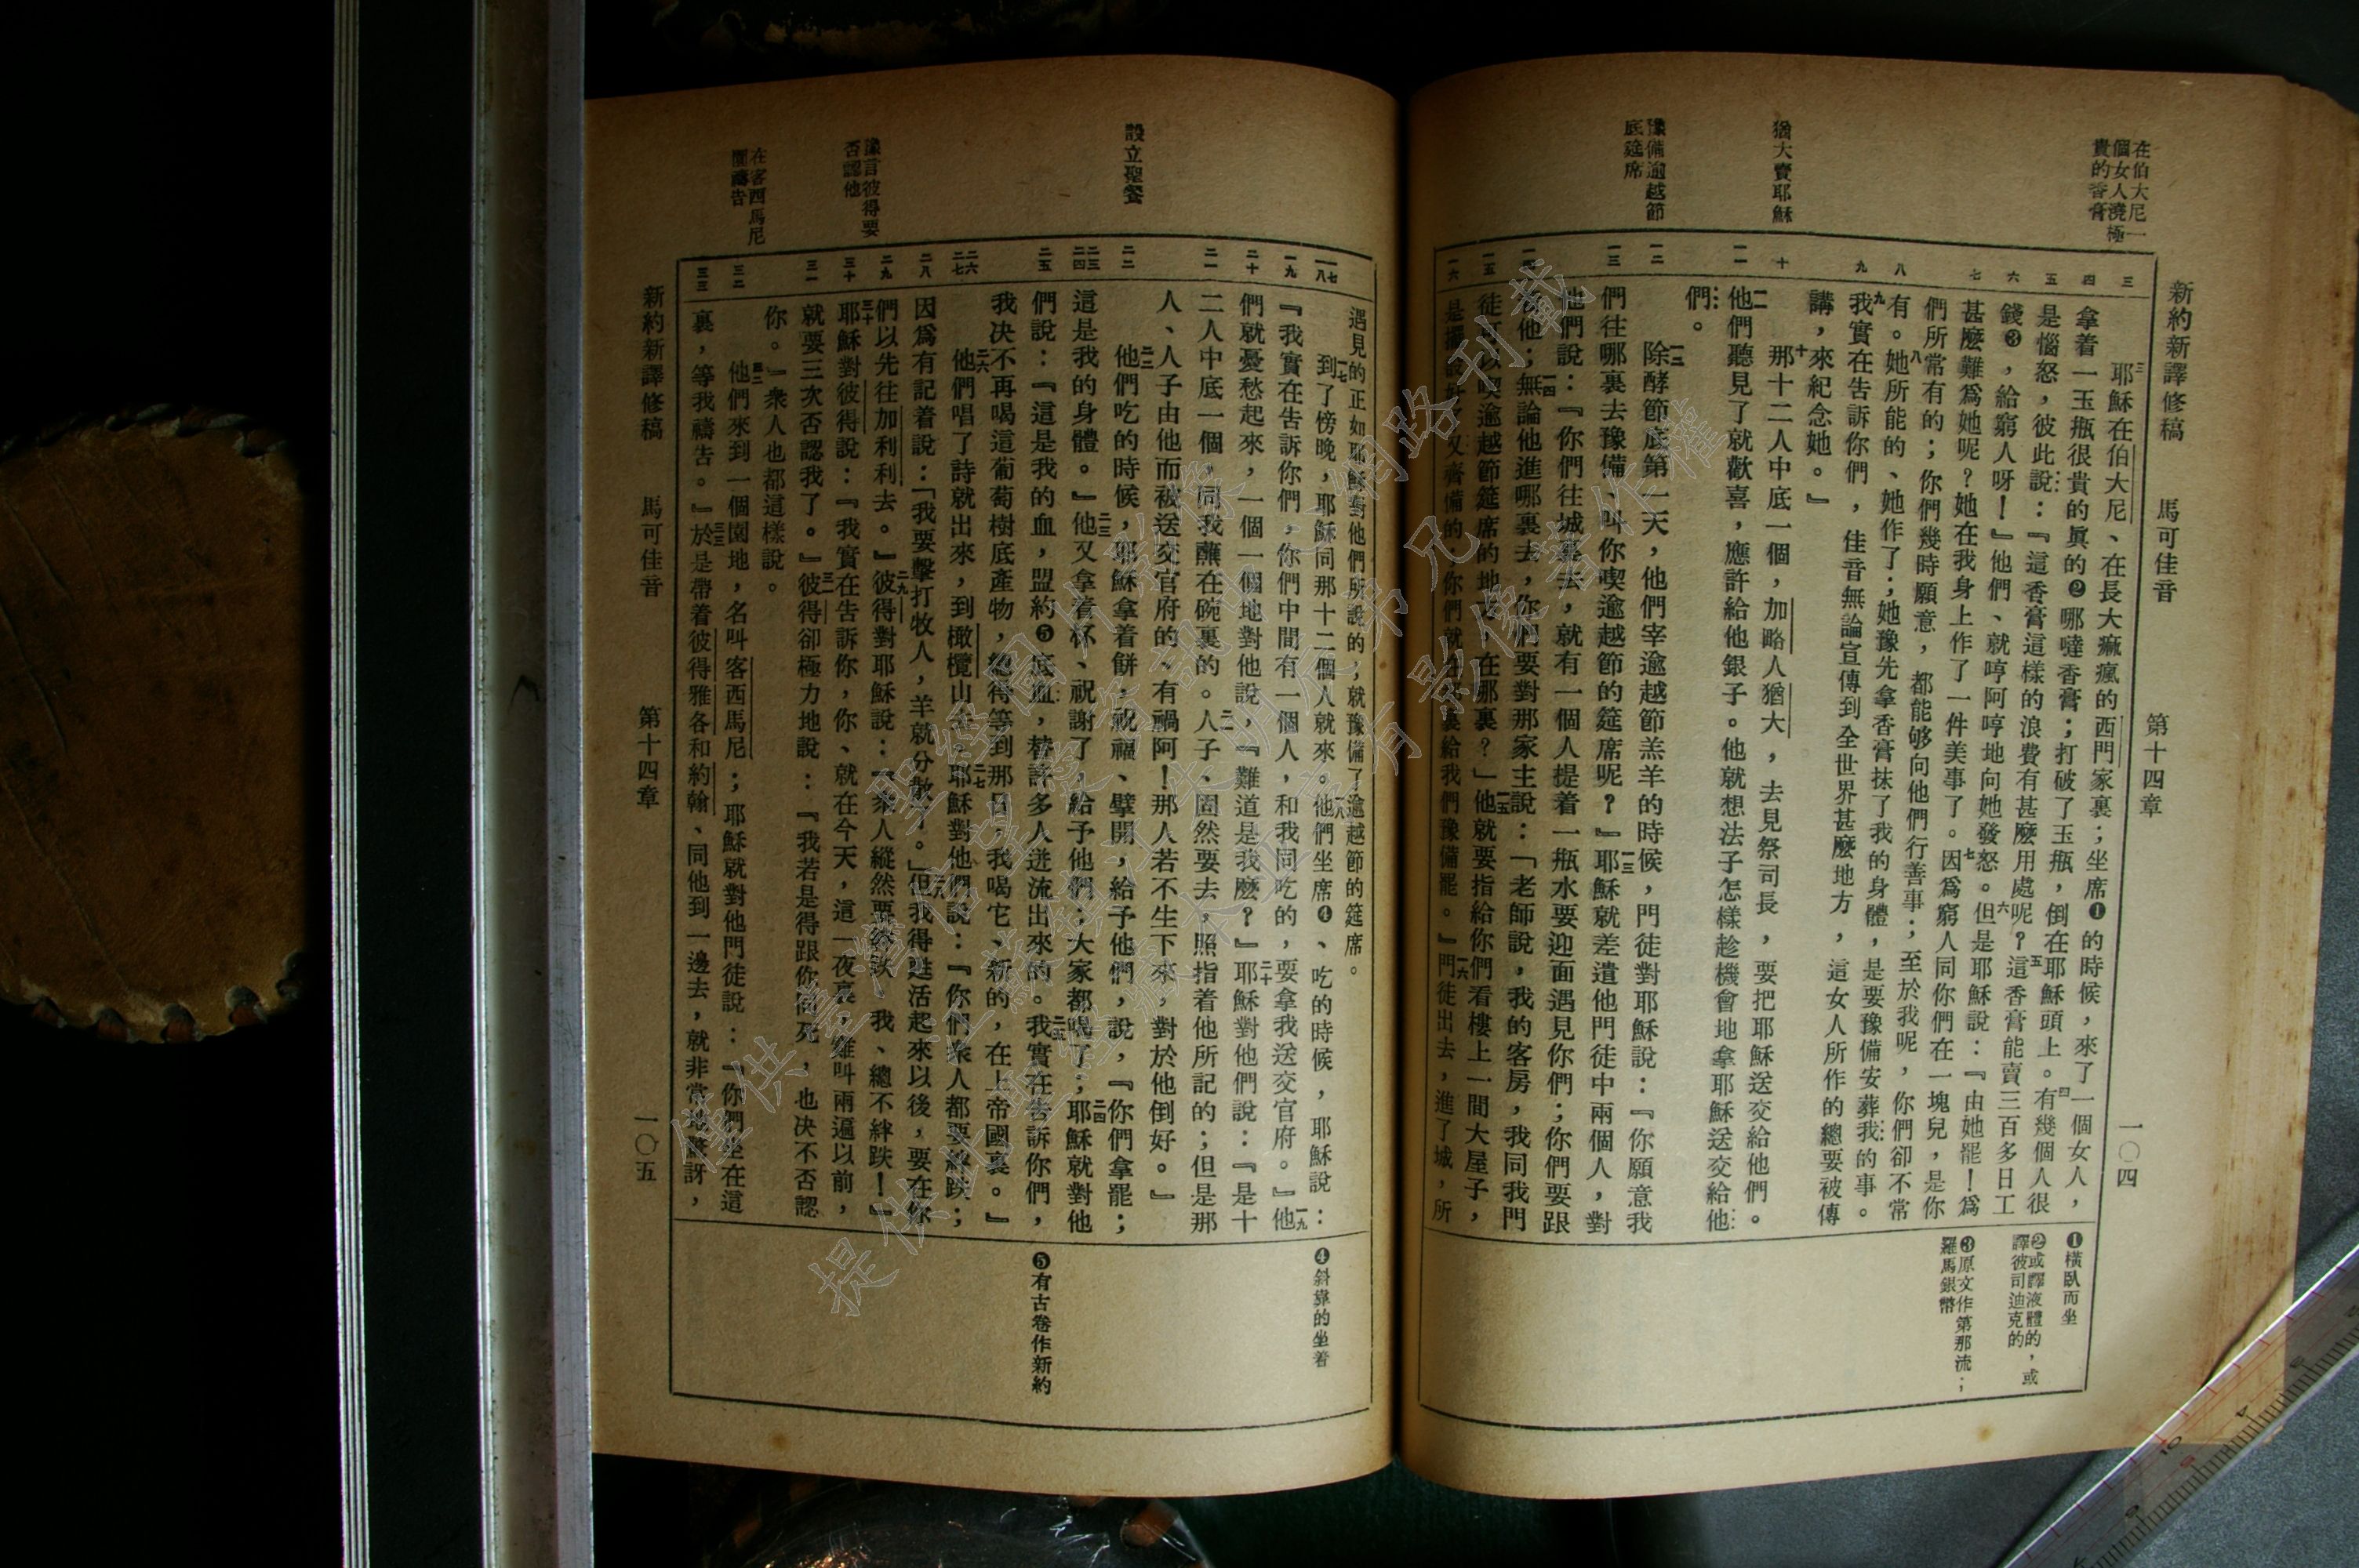 在伯大尼一
個女人澆極
貴的香膏
猶大賣耶穌
豫備逾越節
底筵席
新約新譯修稿 馬可佳音 第十四章 一〇四
三
四
五
六
七
八
九
十
一一
一二
一三
一四
一五
一六
三耶穌在伯大尼、在長大痲瘋的西門家裏;坐席❶的時候,來了一個女人,
拿着一玉瓶很貴的眞的❷哪噠香膏;打破了玉瓶,倒在耶穌頭上。四有幾個人很
是惱怒,彼此說:『這香膏這樣的浪費有甚麽用處呢?五這香膏能賣三百多日工
錢❸,給窮人呀!』他們、就哼阿哼地向她發怒。六但是耶穌說:『由她罷!爲
甚麽難爲她呢?她在我身上作了一件美事了。七因爲窮人同你們在一塊兒,是你
們所常有的;你們幾時願意,都能够向他們行善事;至於我呢,你們卻不常
有。八她所能的、她作了;她豫先拿香膏抹了我的身體,是要豫備安葬我的事。
九我實在告訴你們,佳音無論宣傳到全世界甚麽地方,這女人所作的總要被傳
講,來紀念她。』
十那十二人中底一個,加略人猶大,去見祭司長,要把耶穌送交給他們。
一一他們聽見了就歡喜,應許給他銀子。他就想法子怎樣趁機會地拿耶穌送交給他
們。
一二除酵節底第一天,他們宰逾越節羔羊的時候,門徒對耶穌說:『你願意我
們往哪裏去豫備、叫你喫逾越節的筵席呢?』一三耶穌就差遣他門徒中兩個人,對
他們說:『你們往城裏去,就有一個人提着一瓶水要迎面遇見你們;你們要跟
他;一四無論他進哪裏去,你們要對那家主說:「老師說,我的客房,我同我門
徒可以喫逾越節筵席的地方,在那裏?」一五他就要指給你們看樓上一間大屋子,
是擺設好又齊備的,你們就在那裏給我們豫備罷。』一六門徒出去,進了城,所
❶橫臥而坐
❷或譯液體的,或
譯彼司迪克的
❸原文作第那流;
羅馬銀幣
設立聖餐
豫言彼得要
否認他
在客西馬尼
園禱告
一七
一八
一九
二十
二一
二二
二三
二四
二五
二六
二七
二八
二九
三十
三一
三二
三三
遇見的正如耶穌對他們所說的;就豫備了逾越節的筵席。
一七到了傍晚,耶穌同那十二個人就來。一八他們坐席❹、吃的時候,耶穌說:
『我實在告訴你們,你們中間有一個人,和我同吃的,要拿我送交官府。』一九他
們就憂愁起來,一個一個地對他說,『難道是我麽?』二十耶穌對他們說:『是十
二人中底一個,同我蘸在碗裏的。二一人子、固然要去,照指着他所記的;但是那
人、人子由他而被送交官府的、有禍阿!那人若不生下來,對於他倒好。』
二二他們吃的時候,耶穌拿着餅,祝福、擘開,給予他們,說,『你們拿罷;
這是我的身體。』二三他又拿着杯、祝謝了,給予他們;大家都喝了;二四耶穌就對他
們說:『這是我的血,盟約❺底血,替許多人迸流出來的。二五我實在告訴你們,
我決不再喝這葡萄樹底產物,總得等到那日、我喝它、新的,在上帝國裏。』
二六他們唱了詩就出來,到橄欖山去。二七耶穌對他們說:『你們衆人都要絆跌;
因爲有記着說:「我要擊打牧人,羊就分散了。」二八但我得甦活起來以後,要在你
們以先往加利利去。』二九彼得對耶穌說:『衆人縱然要絆跌,我、總不絆跌!』
三十耶穌對彼得說:『我實在告訴你,你、就在今天,這一夜裏,雞叫兩遍以前,
就要三次否認我了。』三一彼得卻極力地說:『我若是得跟你同死,也決不否認
你。』衆人也都這樣說。
三二他們來到一個園地,名叫客西馬尼;耶穌就對他門徒說:『你們坐在這
裏,等我禱告。』三三於是帶着彼得雅各和約翰、同他到一邊去,就非常地驚訝,
❹斜靠的坐着
❺有古卷作新約
新約新譯修稿 馬可佳音 第十四章 一〇五